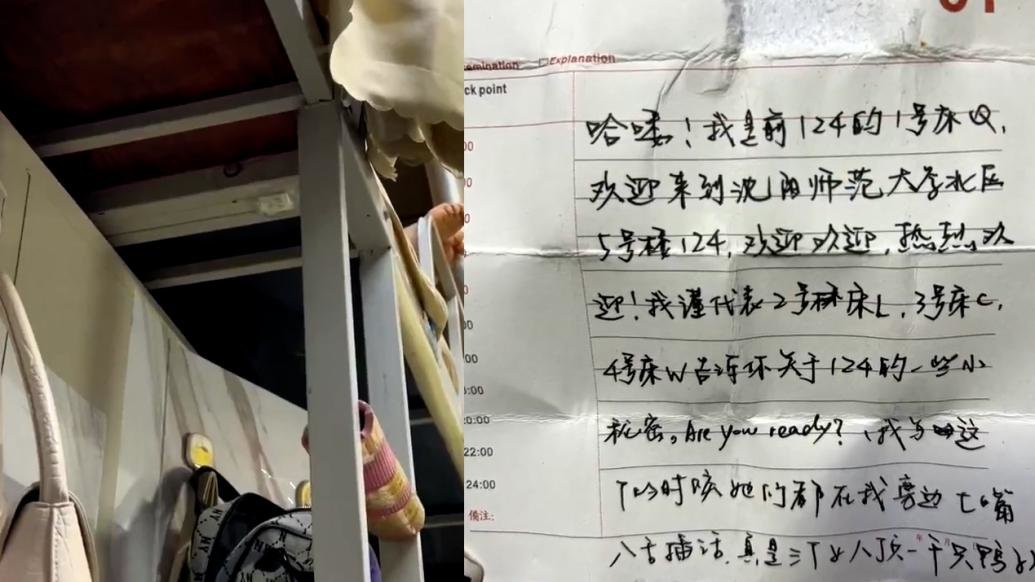 Explanation
ck point
哈喽！我是前124的1号床Q,
欢迎来到沈阳师范大学北区
5号楼124,欢迎欢迎,热烈欢
迎！我谨代表2号床L,3号床C,
4号床W告诉你关于124的一些小
秘密。Are you ready?(我写这
20:00
22:00
个的时候她们都在我旁边七嘴
24:00
備注:
八舌插话,真是三个女人顶一千只鸭
NY